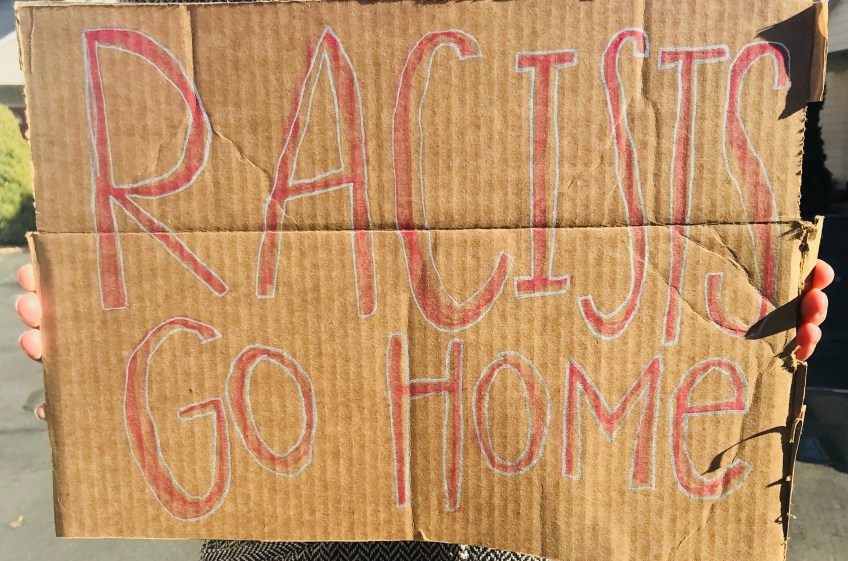 RACISTS
GO HOMe